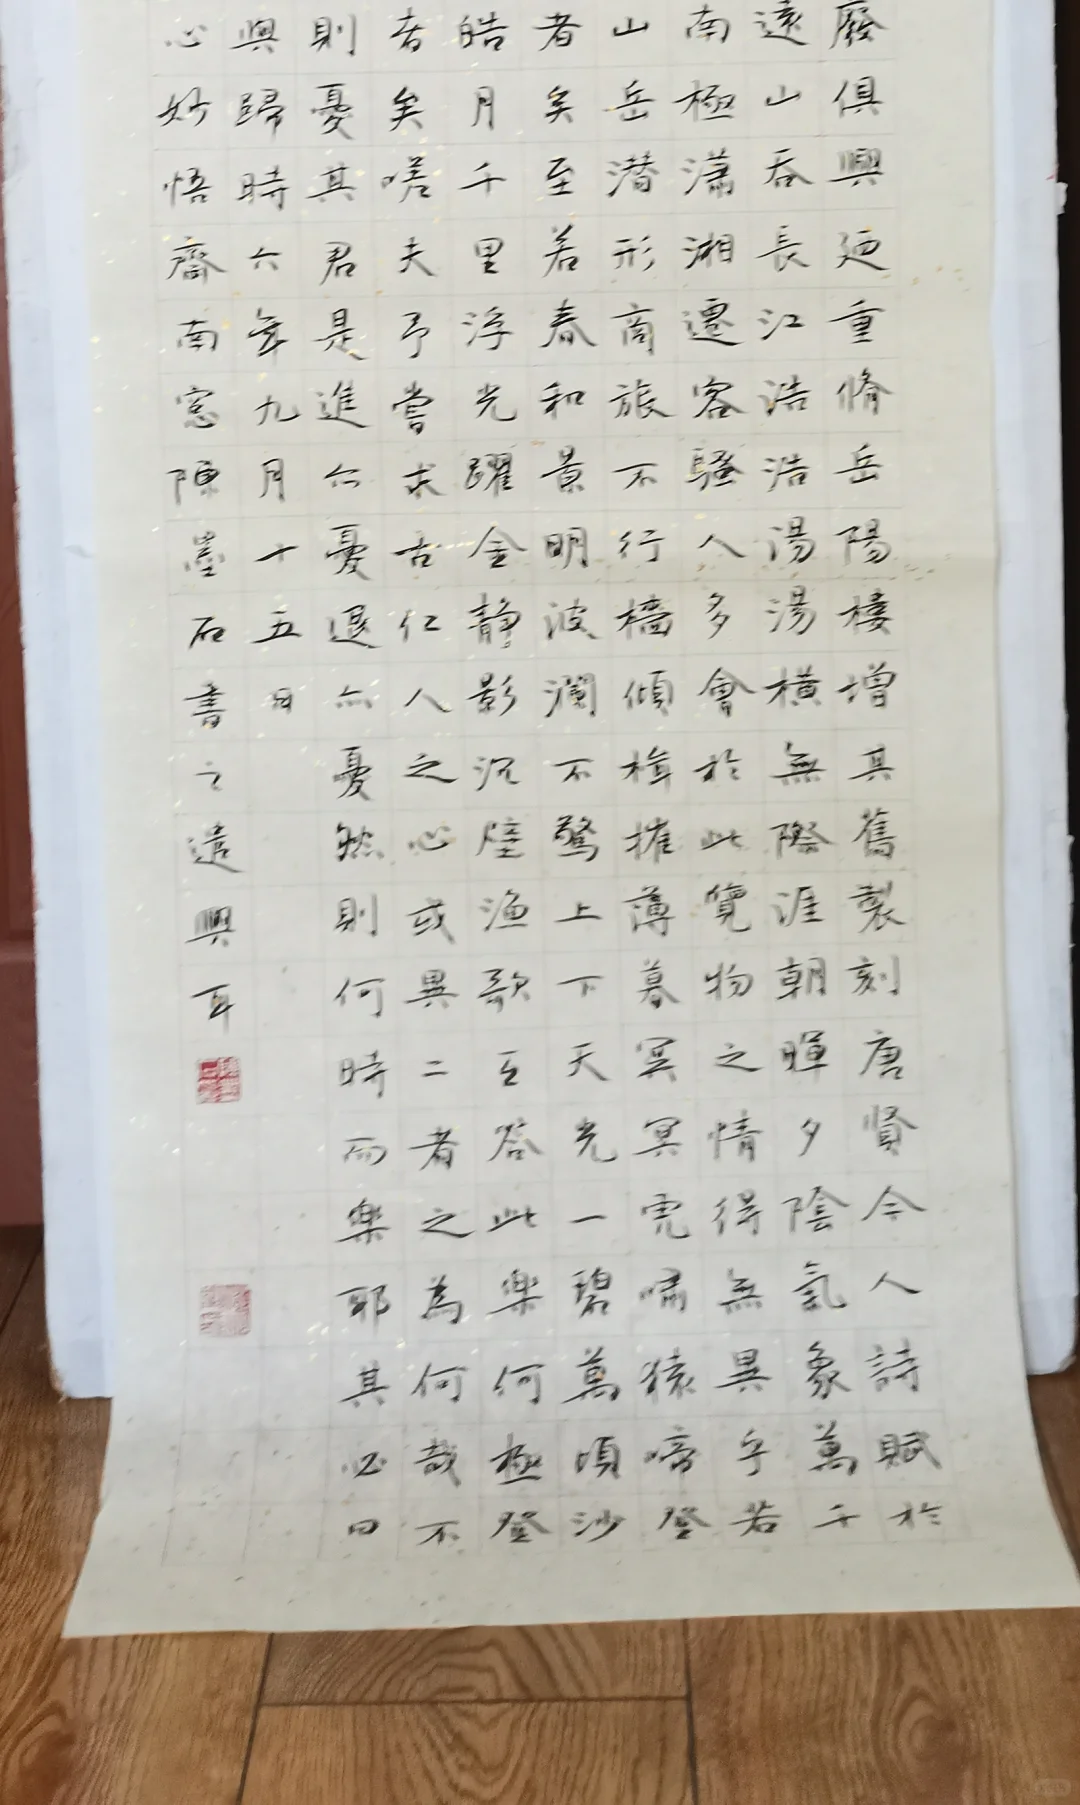 廢俱興廼重脩岳陽樓增其舊製刻唐賢今人詩賦於
遠山吞長江浩浩湯湯橫無際涯朝暉夕陰氣象萬千
南極瀟湘遷客騷人多會於此覽物之情得無異乎若
山岳潛形商旅不行檣傾楫摧薄暮冥冥虎嘯猿啼登
者矣至若春和景明波瀾不驚上下天光一碧萬頃沙
皓月千里浮光躍金静影沉璧漁歌互答此樂何極登
者矣嗟夫予嘗求古仁人之心或異二者之為何哉不
則憂其君是進亦憂退亦憂然則何時而樂耶其必曰
與歸時六年九月十五日
心妙悟齋南窓陳墨石書之遣興耳